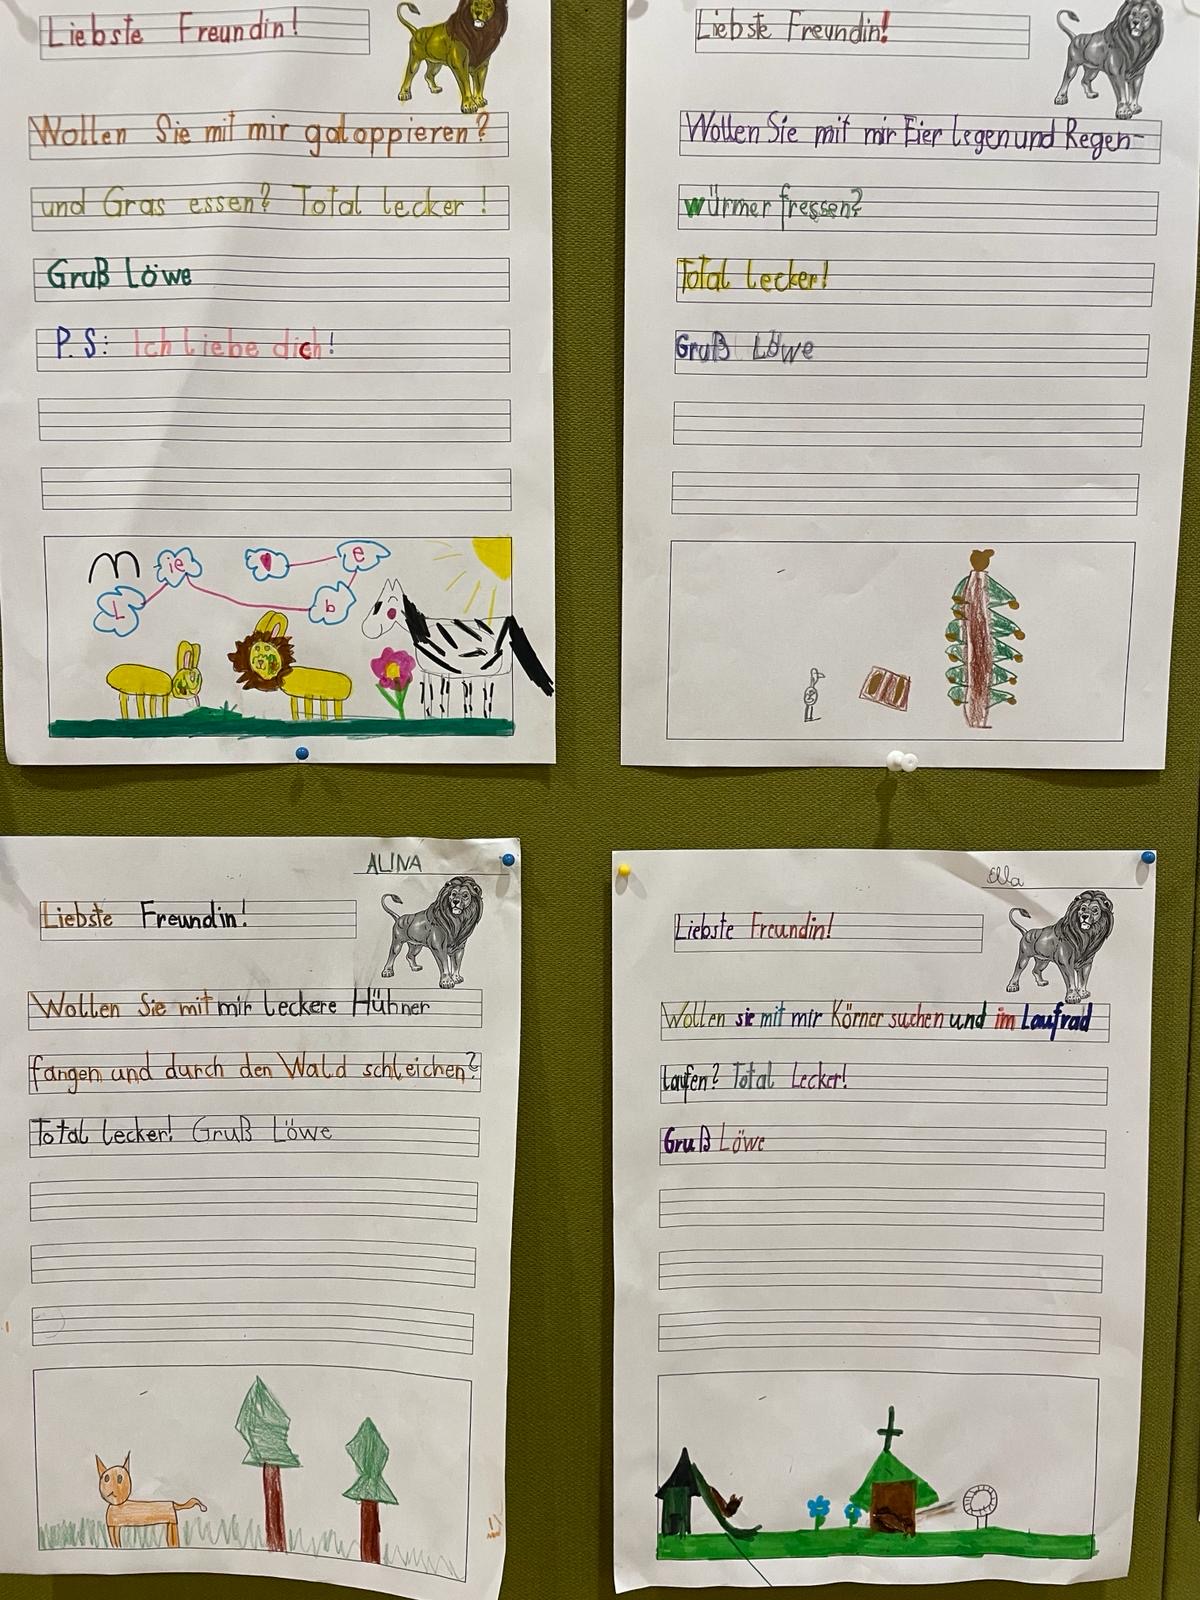 Liebste Freundin!
Wollen Sie mit mir galoppieren?
und Gras essen? Total lecker!
Gruß Löwe
P.S: Ich liebe dich!
L ie b e
Liebste Freundin!
Wollen Sie mit mir Eier legen und Regen-
würmer fressen?
Total lecker!
Gruß Löwe
ALINA
Liebste Freundin!
Wollen Sie mit mir leckere Hühner
fangen und durch den Wald schleichen?
Total lecker! Gruß Löwe
Ella
Liebste Freundin!
Wollen sie mit mir Körner suchen und im Laufrad
laufen? Total Lecker!
Gruß Löwe